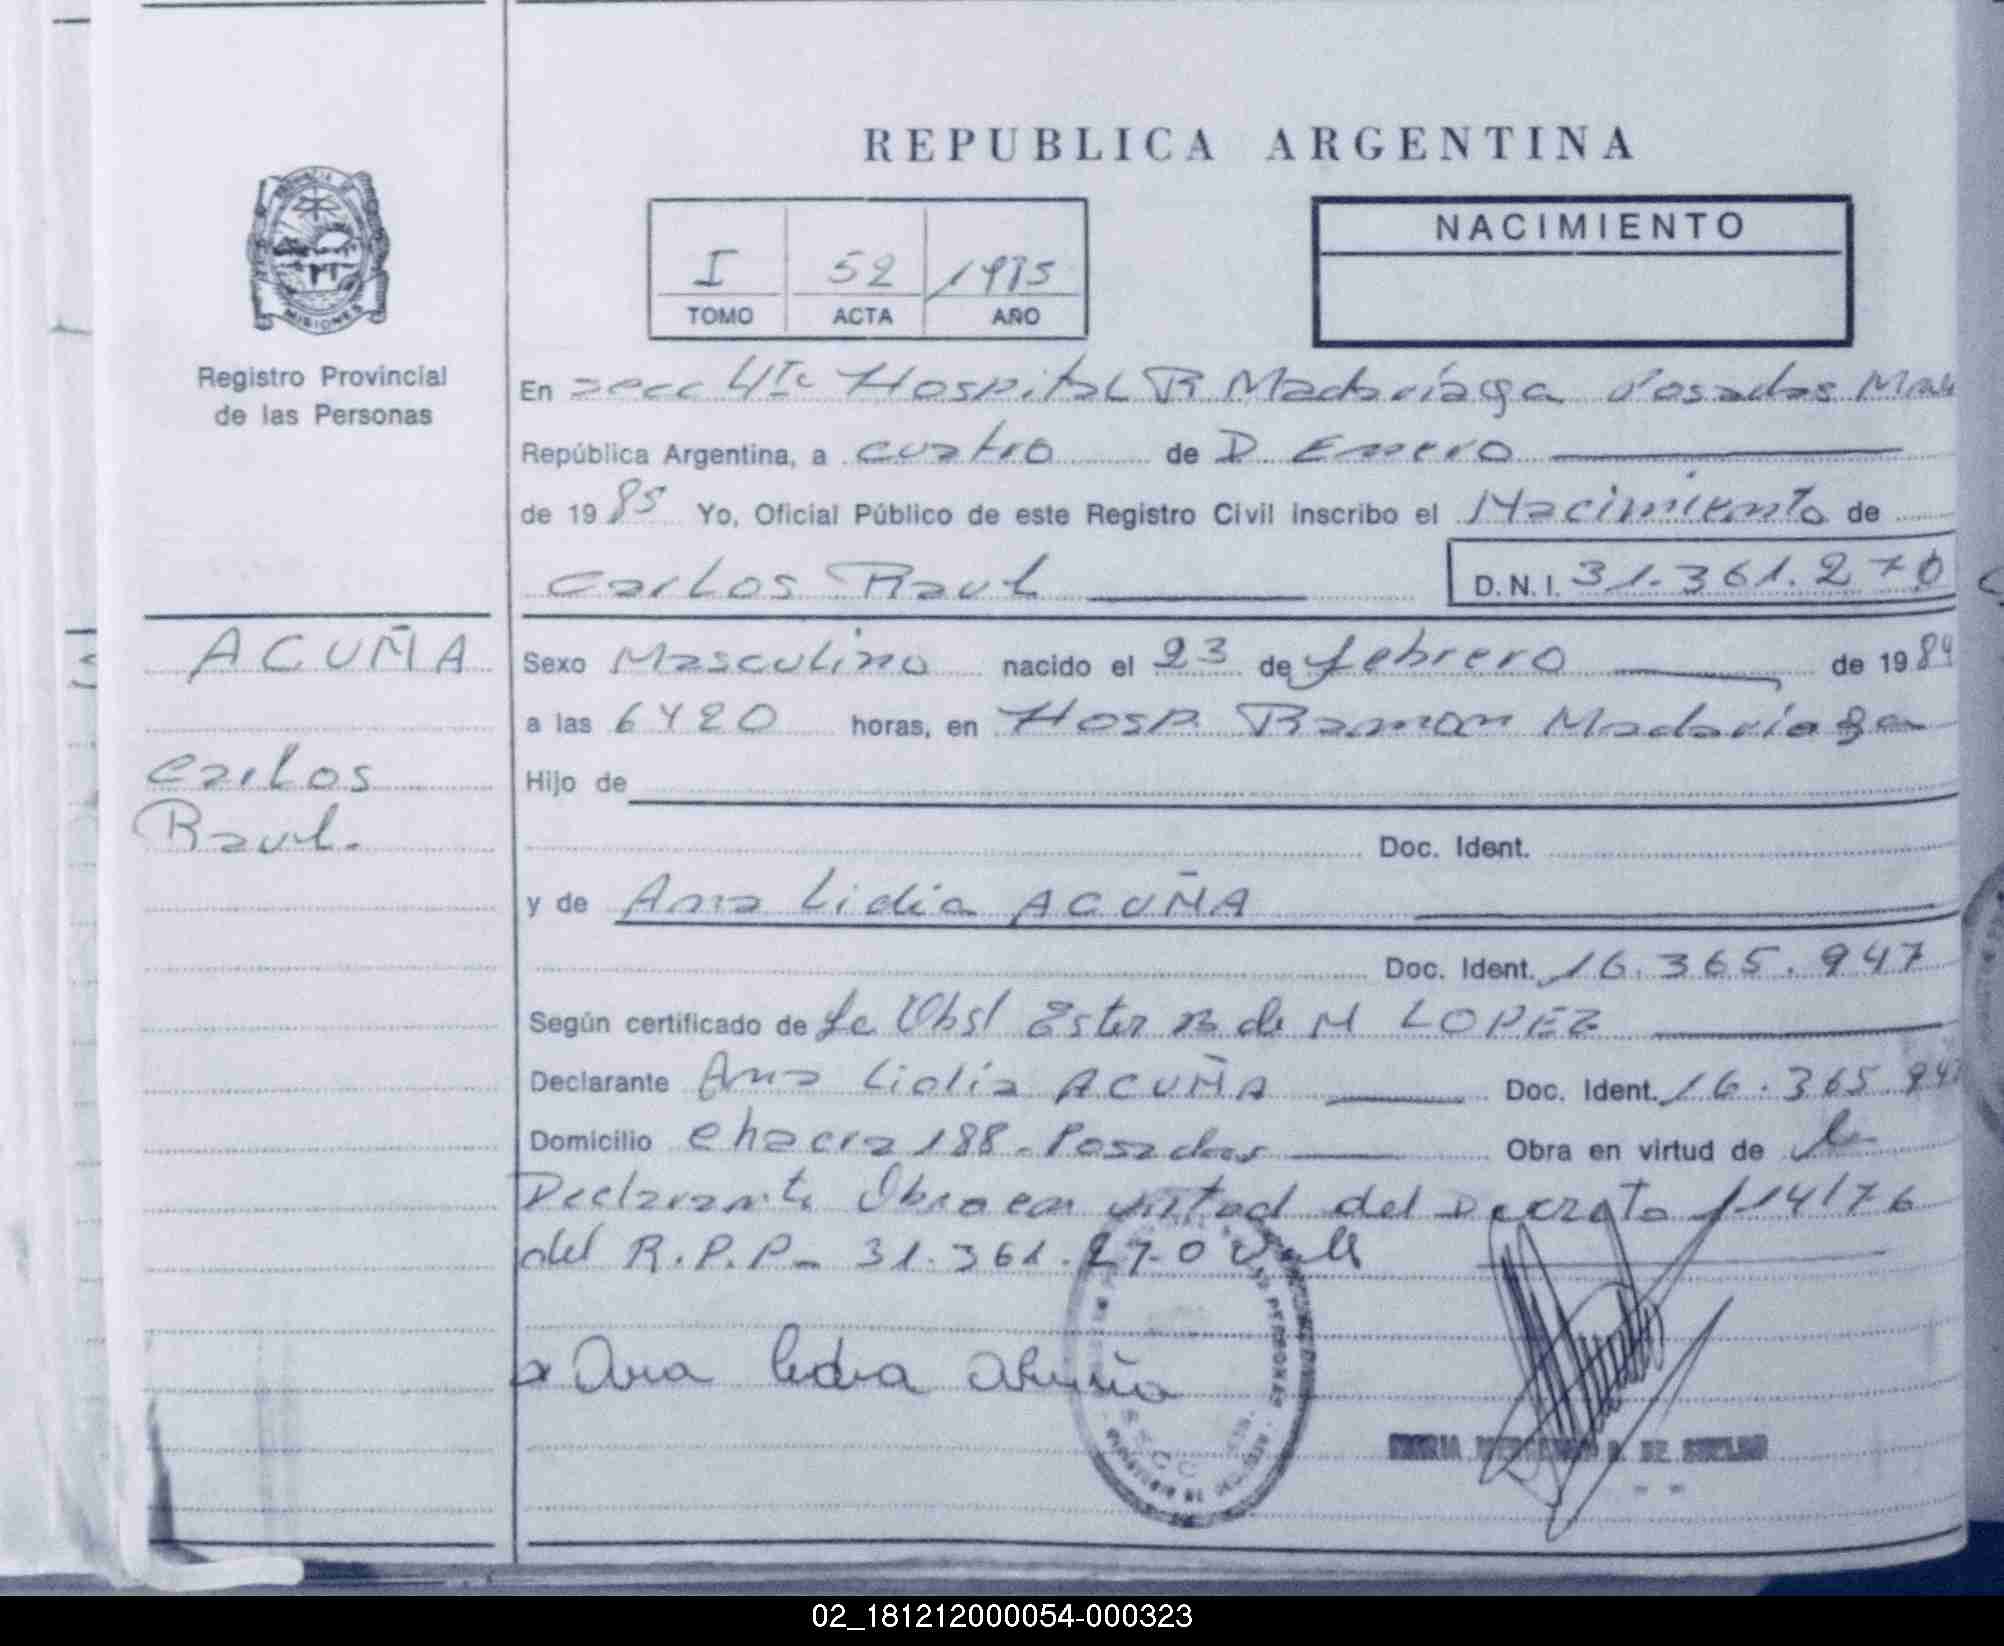 REPUBLICA ARGENTINA
PROVINCIA DE
MISIONES
Registro Provincial
de las Personas
I 52 1985
TOMO ACTA AÑO
NACIMIENTO
En secc 4ta Hospital R Madariaga Posadas
República Argentina, a cuatro de D Enero
de 19 85 Yo, Oficial Público de este Registro Civil inscribo el Nacimiento de
Carlos Raul D.N.I. 31.361.270
ACUÑA
Carlos
Raul.
Sexo Masculino nacido el 23 de febrero de 19 84
a las 6 y 20 horas, en Hosp. Ramon Madariaga
Hijo de
Doc. Ident.
y de Ana Lidia ACUÑA
Doc. Ident. 16.365.947
Según certificado de La Obst Ester B de M LOPEZ
Declarante Ana Lidia ACUÑA Doc. Ident. 16.365.947
Domicilio Chacra 188 - Posadas Obra en virtud de la
Declarante Obra en virtud del Decreto 114/76
del R.P.P- 31.361.270 Vale
x Ana Lidia Acuña
02_181212000054-000323